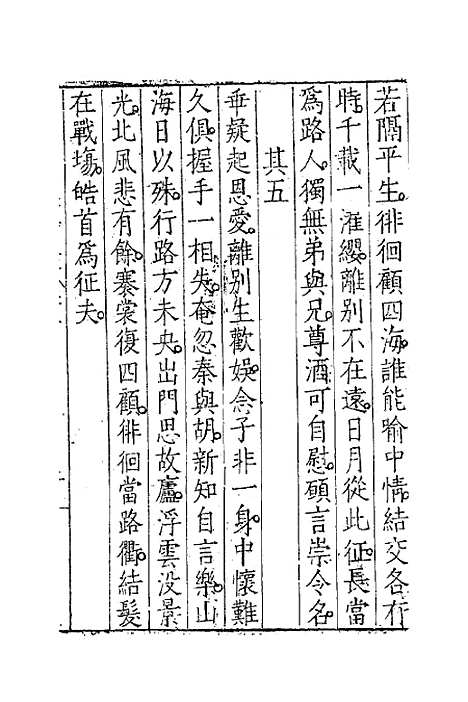 若隔平生。徘徊顧四海。誰能喻中情。結交各有
時。千載一濯纓。離别不在遠。日月從此征。長當
爲路人。獨無弟與兄。尊酒可自慰。願言崇令名。
其五
垂疑起恩愛。離别生歡娛。念子非一身。中懷難
久俱。握手一相失。奄忽秦與胡。新知自言樂。山
海日以殊。行路方未央。出門思故廬。浮雲没景
光。北風悲有餘。褰裳復四顧。徘徊當路衢。結髮
在戰塲。皓首爲征夫。